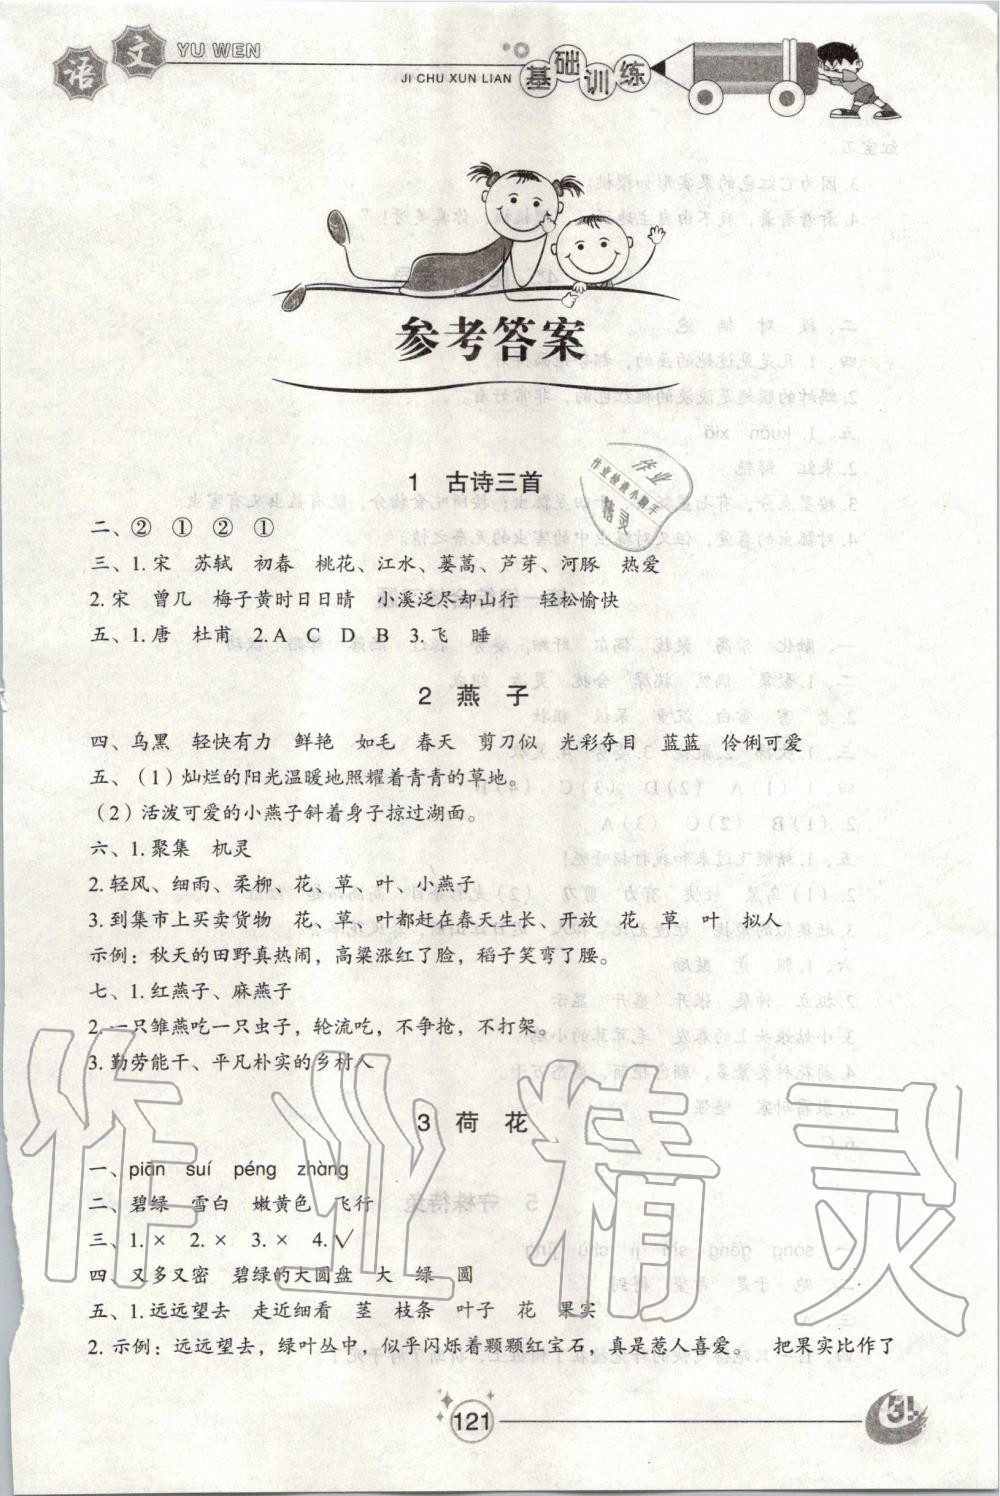 语文 YU WEN
JI CHU XUN LIAN 基础训练
参考答案
1 古诗三首
二、② ① ② ①
三、1.宋 苏轼 初春 桃花、江水、蒌蒿、芦芽、河豚 热爱
2.宋 曾几 梅子黄时日日晴 小溪泛尽却山行 轻松愉快
五、1.唐 杜甫 2.A C D B 3.飞 睡
2 燕 子
四、乌黑 轻快有力 鲜艳 如毛 春天 剪刀似 光彩夺目 蓝蓝 伶俐可爱
五、（1）灿烂的阳光温暖地照耀着青青的草地。
（2）活泼可爱的小燕子斜着身子掠过湖面。
六、1.聚集 机灵
2.轻风、细雨、柔柳、花、草、叶、小燕子
3.到集市上买卖货物 花、草、叶都赶在春天生长、开放 花 草 叶 拟人
示例：秋天的田野真热闹，高粱涨红了脸，稻子笑弯了腰。
七、1.红燕子、麻燕子
2.一只雏燕吃一只虫子，轮流吃，不争抢，不打架。
3.勤劳能干、平凡朴实的乡村人
3 荷 花
一、piān suí péng zhàng
二、碧绿 雪白 嫩黄色 飞行
三、1.× 2.× 3.× 4.√
四、又多又密 碧绿的大圆盘 大 绿 圆
五、1.远远望去 走近细看 茎 枝条 叶子 花 果实
2.示例：远远望去，绿叶丛中，似乎闪烁着颗颗红宝石，真是惹人喜爱。 把果实比作了
121
作业
作业检查小助手
精灵
作业精灵